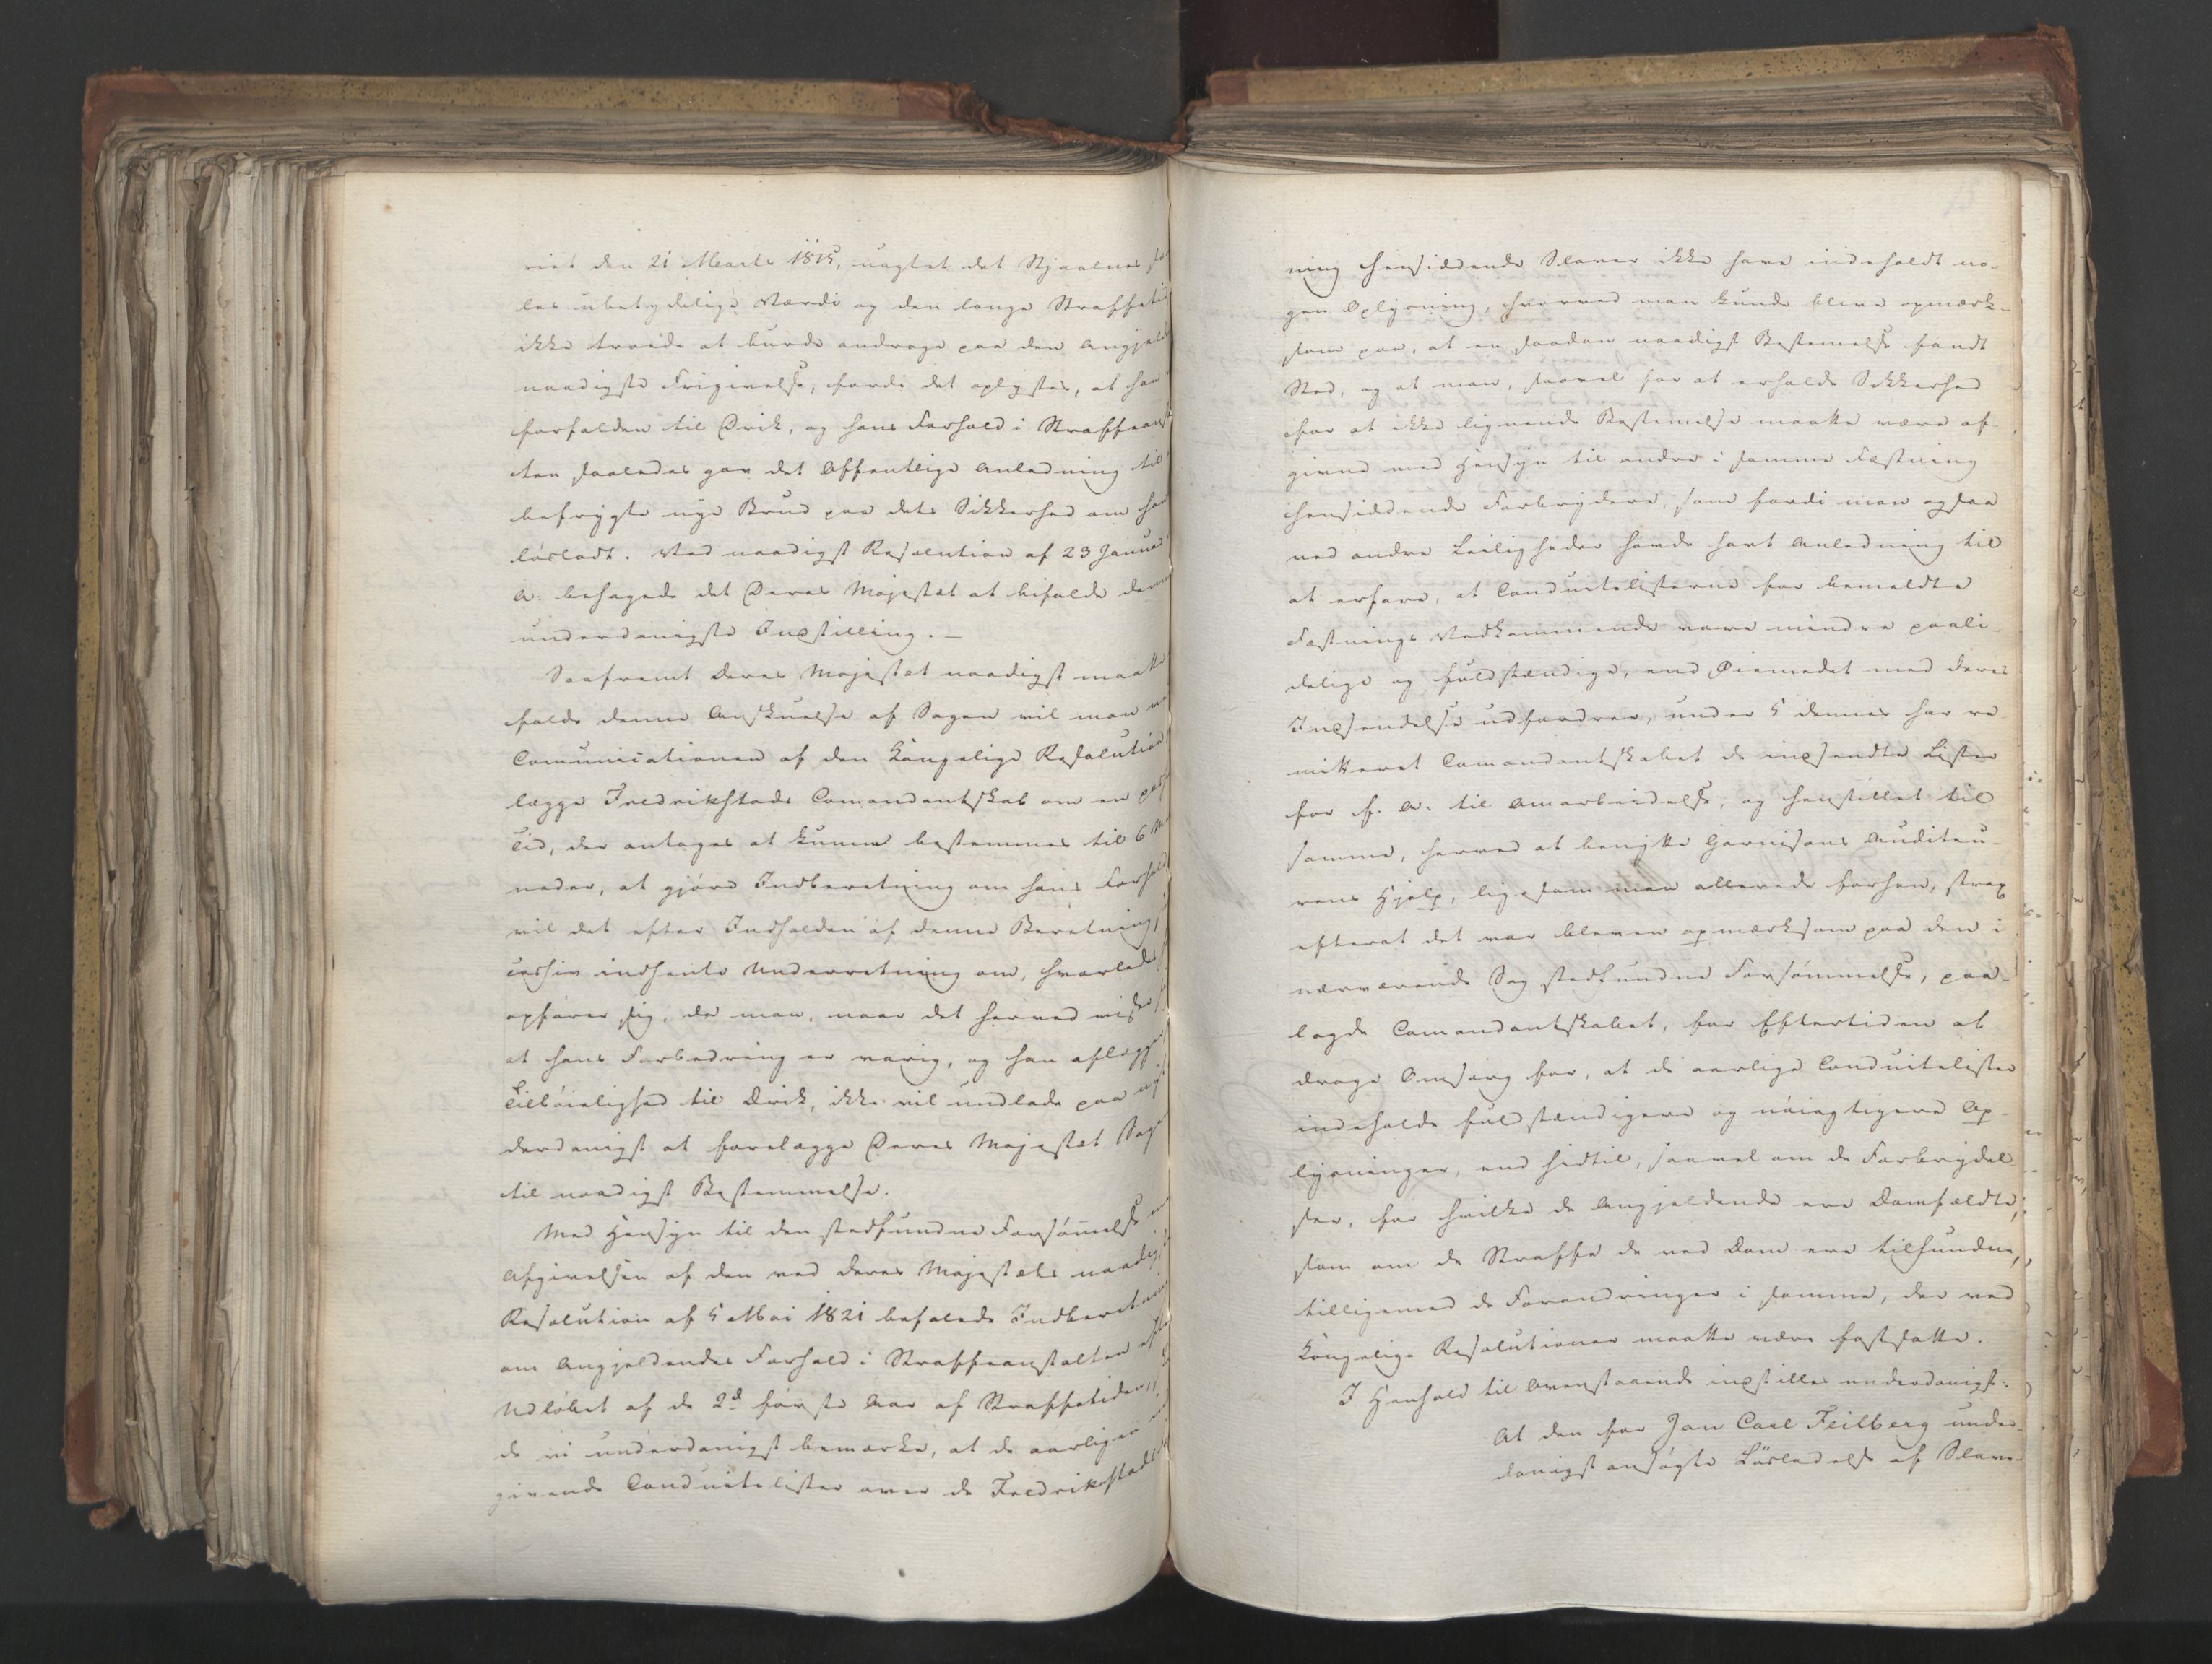 riet den 21 Marts 1815, uagtet det Stjaalnes
les ubetydelige Værdi og den lange Straffetid
ikke troede at burde andrage paa den Angjeld
naadigste Frigivelse, fordi det oplystes, at han
forfalden til Drik, og hans Forhold i Straffeanst
ten saaledes gav det Offentlige Anledning til
befrygte nye Brud paa dets Sikkerhed om han
løslodt. Ved naadigst Resolution af 23 Janua
A. behagede det Deres Majestæt at bifalde denn
underdanigste Indstilling. –
Saafremt Deres Majestæt naadigst maatte
falde denne Anskuelse af Sagen vil man
Comunicationen af den Kongelige Resolution
lægge Fredrikstads Comandantskab om en
Tid, der antages at kunne bestemmes til 6 M
neder, at gjøre Indberetning om hans Forhold
vil det efter Indholden af denne Beretning
indhente Underretning om, hvorledes
opfører sig, da man, naar det herved vise
at hans Forbedring er varig, og han aflægge
Tilbøielighed til Drik, ikke vil undlade paa ny
derdanigst at forelægge Deres Majestæt Sage
til naadigst Bestemmelse.
Med Hensyn til den stedfundne Forsømmelse
Afgivelsen af den ved Deres Majestæts naadig
Resolution af 5 Mai 1821 befalede Indberetning
om Angjeldendes Forhold i Straffeanstalten efter
Udløbet af de 2de første Aar af Straffetiden,
de vi underdanigst bemærke, at de aarligen
givende Conduitelister over de Fredrikstads
ning hensiddende Slaver ikke have indeholdt no-
gen Oplysning, hvorved man kunde blive opmærk-
som paa, at en saadan naadigst Bestemelse fandt
Sted, og at man, saavel for at erholde Sikkerhed
for at ikke lignende Bestemelse maatte være af-
givne med Hensyn til andre i samme Fæstning
hensiddende Forbrydere, som fordi man ogsaa
ved andre Leiligheder havde havt Anledning til
at erfare, at Conduitelisterne for bemeldte
Fæstnings Vedkommende vare mindre paali-
delige og fuldstændige, end Øiemedet med deres
Indsendelse udfordrer, under 5 dennes har re-
mitteret Comandantskabet de indsendte Lister
for f. A. til Omarbeidelse, og henstillet til
samme, herved at benytte Garnisons Auditeu-
rens Hjelp, ligesom man allerede forhen, strax
efterat det var bleven opmærksom paa den i
nærværende Sag stedfundne Forsømmelse, paa-
lagde Comandantskabet, for Eftertiden at
drage Omsorg for, at de aarlige Conduitelister
indeholde fuldstændigere og nøiagtigere Op-
lysninger, end hidtil, saavel om de Forbrydel-
ser, for hvilke de Angjeldende ere Domfældte,
som om de Straffe de ved Dom ere tilfundne,
tilligemed de Forandringer i samme, der ved
Kongelige Resolutioner maatte være fastsatte.
I Henhold til Ovenstaaende indstilles underdanigst:
At den for Jan Carl Feilberg under-
danigst ansøgte Løsladelse af Slave-